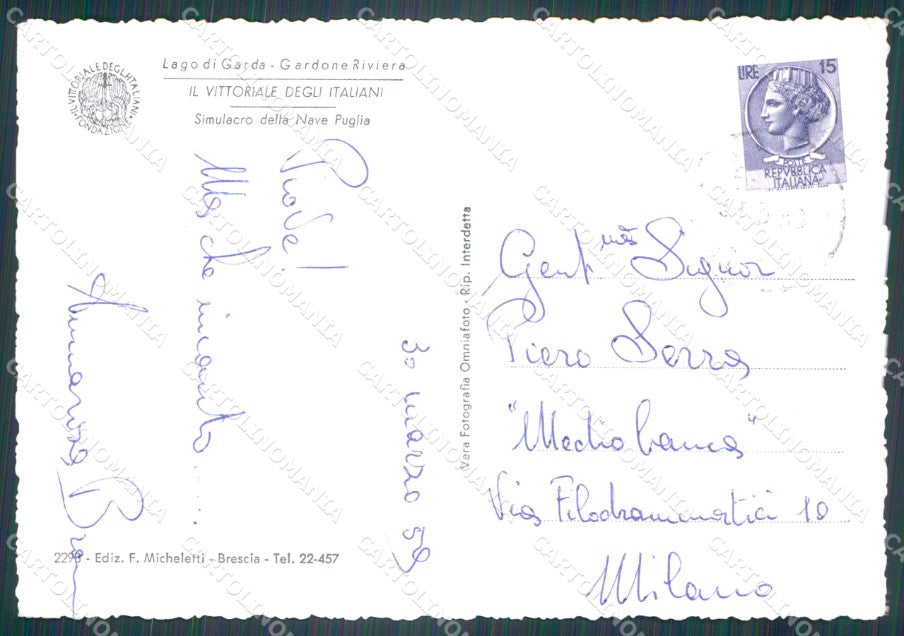 IL VITTORIALE DEGLI ITALIANI
FONDAZIONE
Lago di Garda - Gardone Riviera
IL VITTORIALE DEGLI ITALIANI
Simulacro della Nave Puglia
LIRE 15
POSTE
REPVBBLICA
ITALIANA
Piove!
Ma che incanto.....
Annarosa
30 marzo 59
Vera Fotografia Omniafoto - Rip. Interdetta
Gent mo Signor
Piero Serra
"Mediobanca"
Via Filodrammatici 10
Milano
2298 - Ediz. F. Micheletti - Brescia - Tel. 22-457
CARTOLINOMANIA